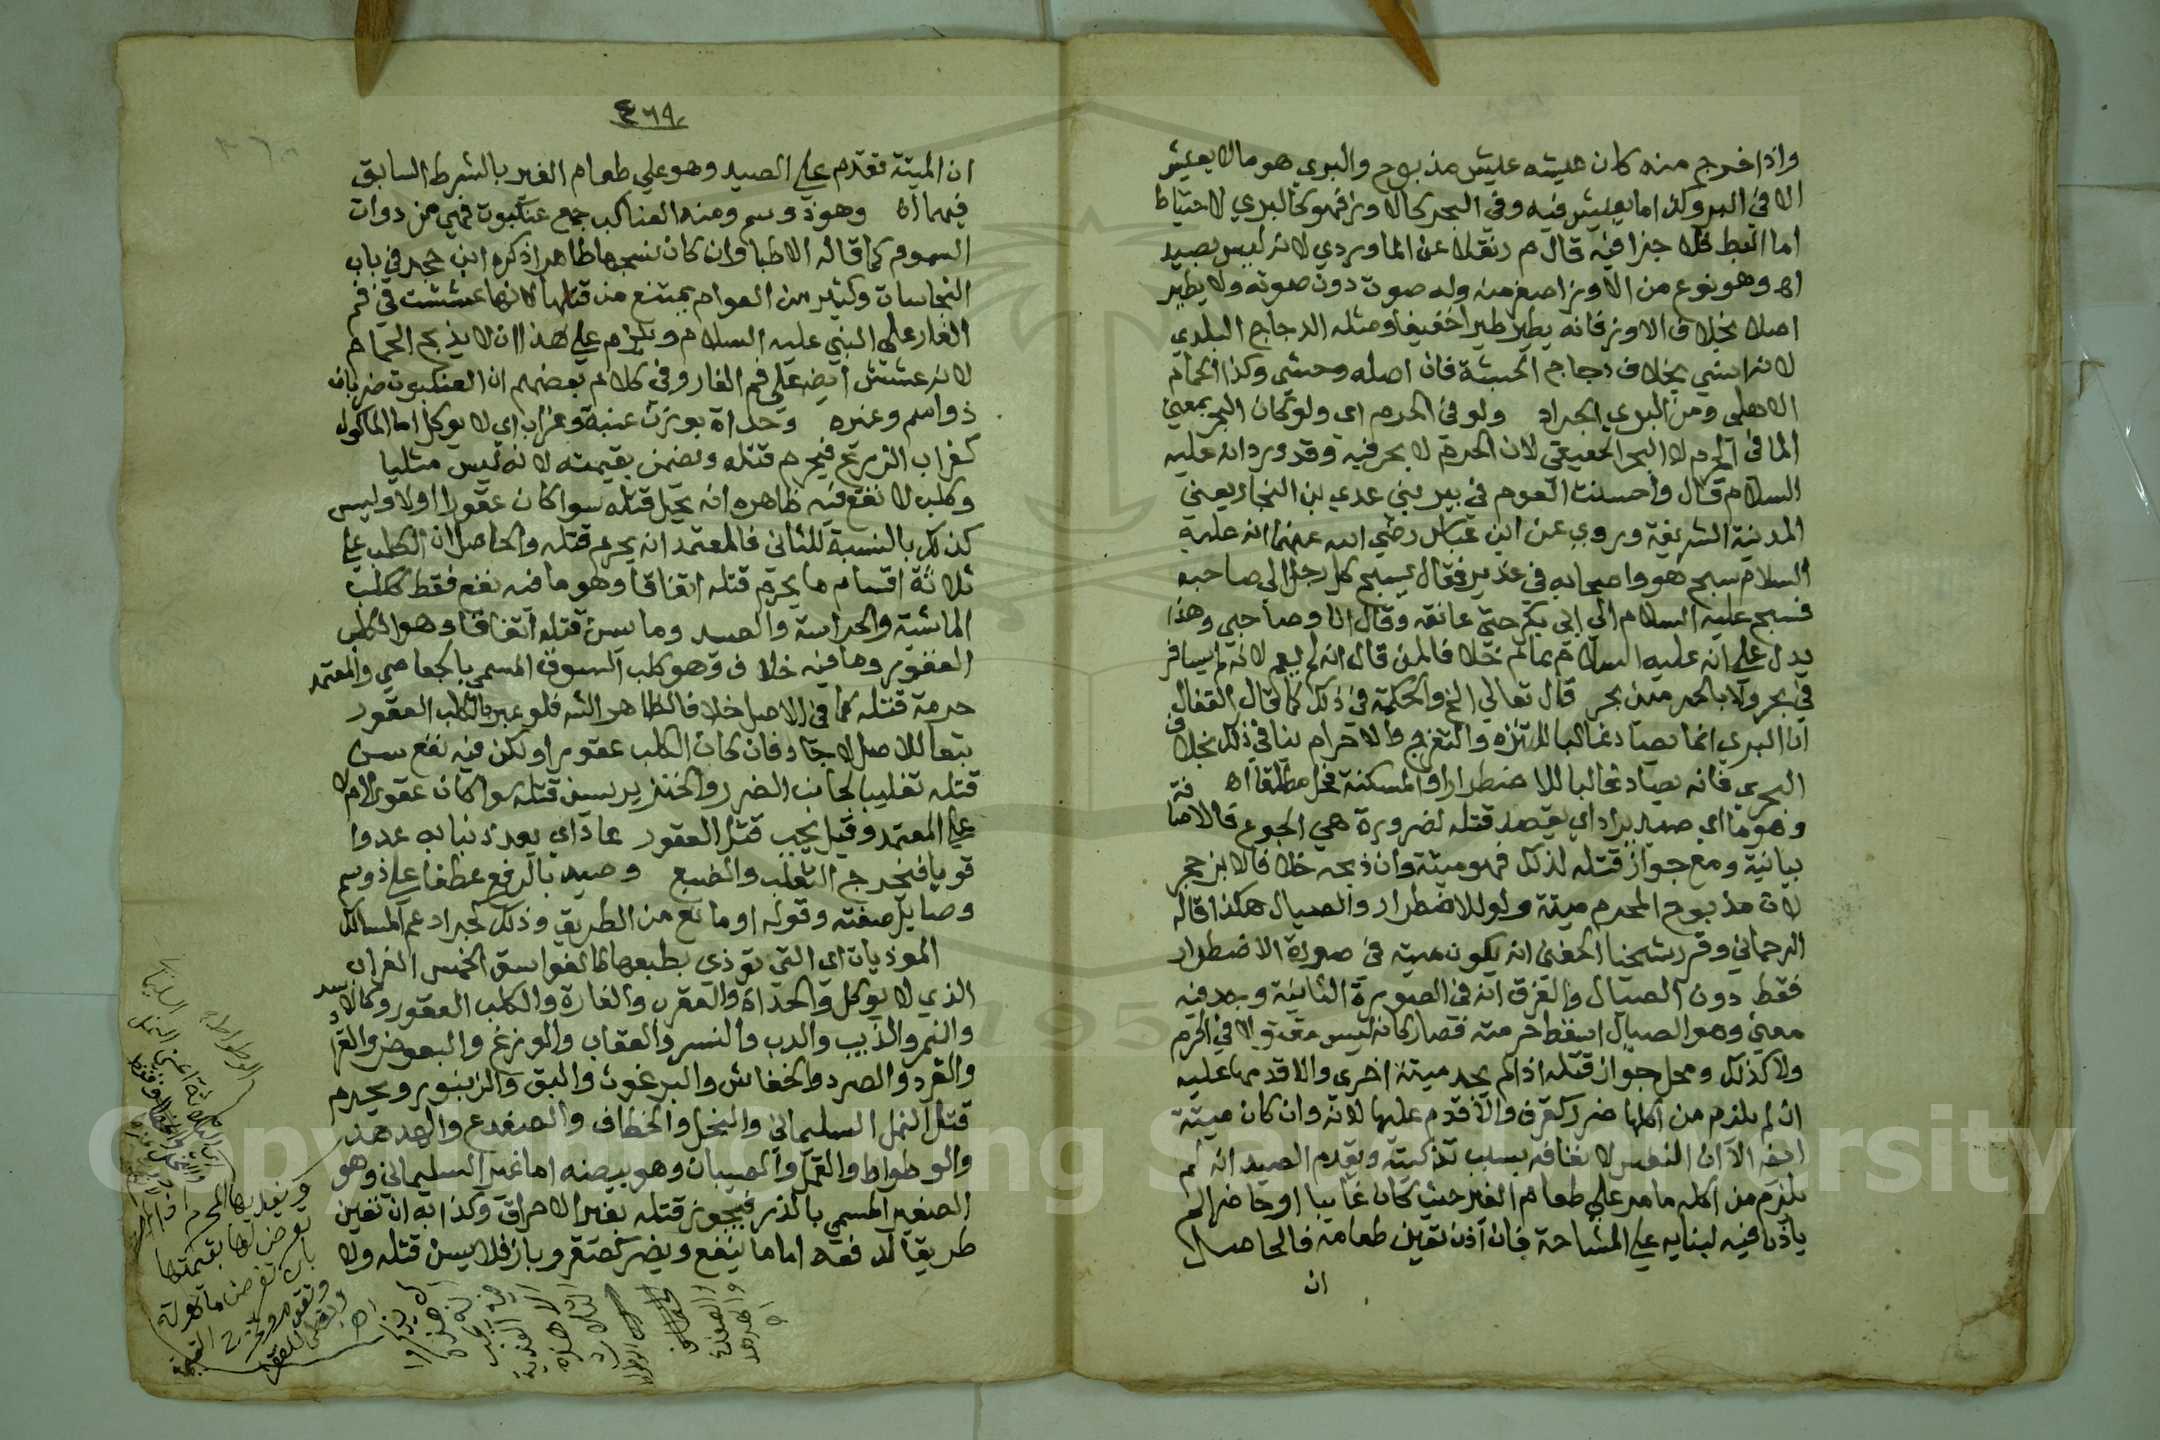 واذا خرج منه كان عيشه عيش مذبوح والبري هو مالا يعيش
الا في البر وكذا ما يعيش فيه وفي البحر كالاوز فهو كالبري لاحتياط
اما البط فلا جزا فيه قال م ر نقلا عن الماوردي لانه ليس بصيد
اه وهو نوع من الاوز اصغر منه وله صوت دون صوته ولا يطير
اصلا بخلاف الاوز فانه يطير طيرا خفيفا ومثله الدجاج البلدي
لانه انسي بخلاف دجاج الحبشة فان اصله وحشي وكذا الحمام
الاهلي ومن البري الجراد ولو في الحرم اى ولو كان البحر بمعنى
الما في الحرم لا البحر الحقيقي لان الحرم لا بحر فيه وقد ورد انه عليه
السلام قال واحسنت العوم في بير بني عدي بن النجار يعني
المدينة الشريفة وروي عن ابن عباس رضي الله عنهما انه عليه
السلام سبح هو واصحابه في غدير فقال ليسبح كل رجل الى صاحبه
فسبح عليه السلام الي ابي بكر حتى عانقه وقال انا وصاحبي وهذا
يدل علي انه عليه السلام عام خلافا لمن قال انه لم يعم لانه لم يسافر
في بحر ولا بالحرمين بحر قال تعالي الخ والحكمة في ذلك كما قال القفال
ان البري انما يصاد غالبا للتنزه والتفرج والاحرام ينافي ذلك بخلاف
البحري فانه يصاد غالبا للاضطرار او المسكنة فحل مطلقا اه
وهو ما اي صيد يراد اي يقصد قتله لضرورة هي الجوع فالاضافة
بيانية ومع جواز قتله لذلك فهو ميتة وان ذبحه خلافا لابن حجر
لان مذبوح المحرم ميتة ولو للاضطرار والصيال هكذا قاله
الرحماني وقرر شيخنا الحفني انه يكون ميتة في صورة الاضطرار
فقط دون الصيال والفرق انه في الصورة الثانية وجد فيه
معنى وهو الصيال اسقط حرمته فصار كانه ليس مقتولا في الحرم
ولا كذلك ومحل جواز قتله اذا لم يجد ميتة اخرى والا قدمها عليه
ان لم يلزم من اكلها ضرر كقرف والا قدم عليها لانه وان كان ميتة
ايضا الا ان النفس لا تعافه بسبب تذكيته ويقدم الصيد ان لم
يلزم من اكله ما مر علي طعام الغير حيث كان غايبا او حاضرا لم
ياذن فيه لبنايه علي المشاحة فان اذن تعين طعامه فالحاصل
ان
٤٦٩
ان الميتة تقدم علي الصيد وهو علي طعام الغير بالشرط السابق
فيهما اه وهو ذو سم ومنه العناكب جمع عنكبوت فهي من ذوات
السموم كما قاله الاطبا وان كان نسجها طاهرا ذكره ابن حجر في باب
النجاسات وكثير من العوام يمتنع من قتلها لانها عششت في فم
الغار على النبي عليه السلام ويلزم على هذا ان لا يذبح الحمام
لانه عشش ايضا علي فم الغار وفي كلام بعضهم ان العنكبوت ضربان
ذو سم وغيره وحداة بوزن عنبة وغراب اي لا يوكل اما الماكول
كغراب الزرع فيحرم قتله ويضمن بقيمته لانه ليس مثليا
وكلب لا نفع فيه ظاهره انه يحل قتله سوا كان عقورا اولا وليس
كذلك بالنسبة للثاني فالمعتمد انه يحرم قتله والحاصل ان الكلب على
ثلاثة اقسام ما يحرم قتله اتفاقا وهو ما فيه نفع فقط ككلب
الماشية والحراسة والصيد وما يسن قتله اتفاقا وهو الكلب
العقور وما فيه خلاف وهو كلب السوق المسمى بالجعاصي والمعتمد
حرمة قتله كما في الاصل خلافا لظاهر الش فلو عبر بالكلب العقور
تبعا للاصل لاجاد فان كان الكلب عقورا ولكن فيه نفع يسن
قتله تغليبا لجانب الضرر والخنزير يسن قتله سوا كان عقورا ام لا
على المعتمد وقيل يجب قتل العقور عاد اي يعدو بنابه عدوا
قويا فيخرج الثعلب والضبع وصيد بالرفع عطفا علي ذو سم
وصايل صفته وقوله او مانع من الطريق وذلك كجراد عم المسالك
الموذيات اى التي توذي بطبعها كالفواسق الخمس الغراب
الذي لا يوكل والحداة والعقرب والفارة والكلب العقور وكالاسد
والنمر والذيب والدب والنسر والعقاب والوزغ والبعوض والقراد
والقرد والصرد والخفاش والبرغوث والبق والزنبور ويحرم
قتل النمل السليماني والنحل والخطاف والضفدع والهدهد
والوطواط والقمل والصيبان وهو بيضه اما غير السليماني وهو
الصغير المسمى بالذر فيجوز قتله بغير الاحراق وكذا به ان تعين
طريقا لدفعه اما ما ينفع ويضر كصقر وباز فلا يسن قتله ولا